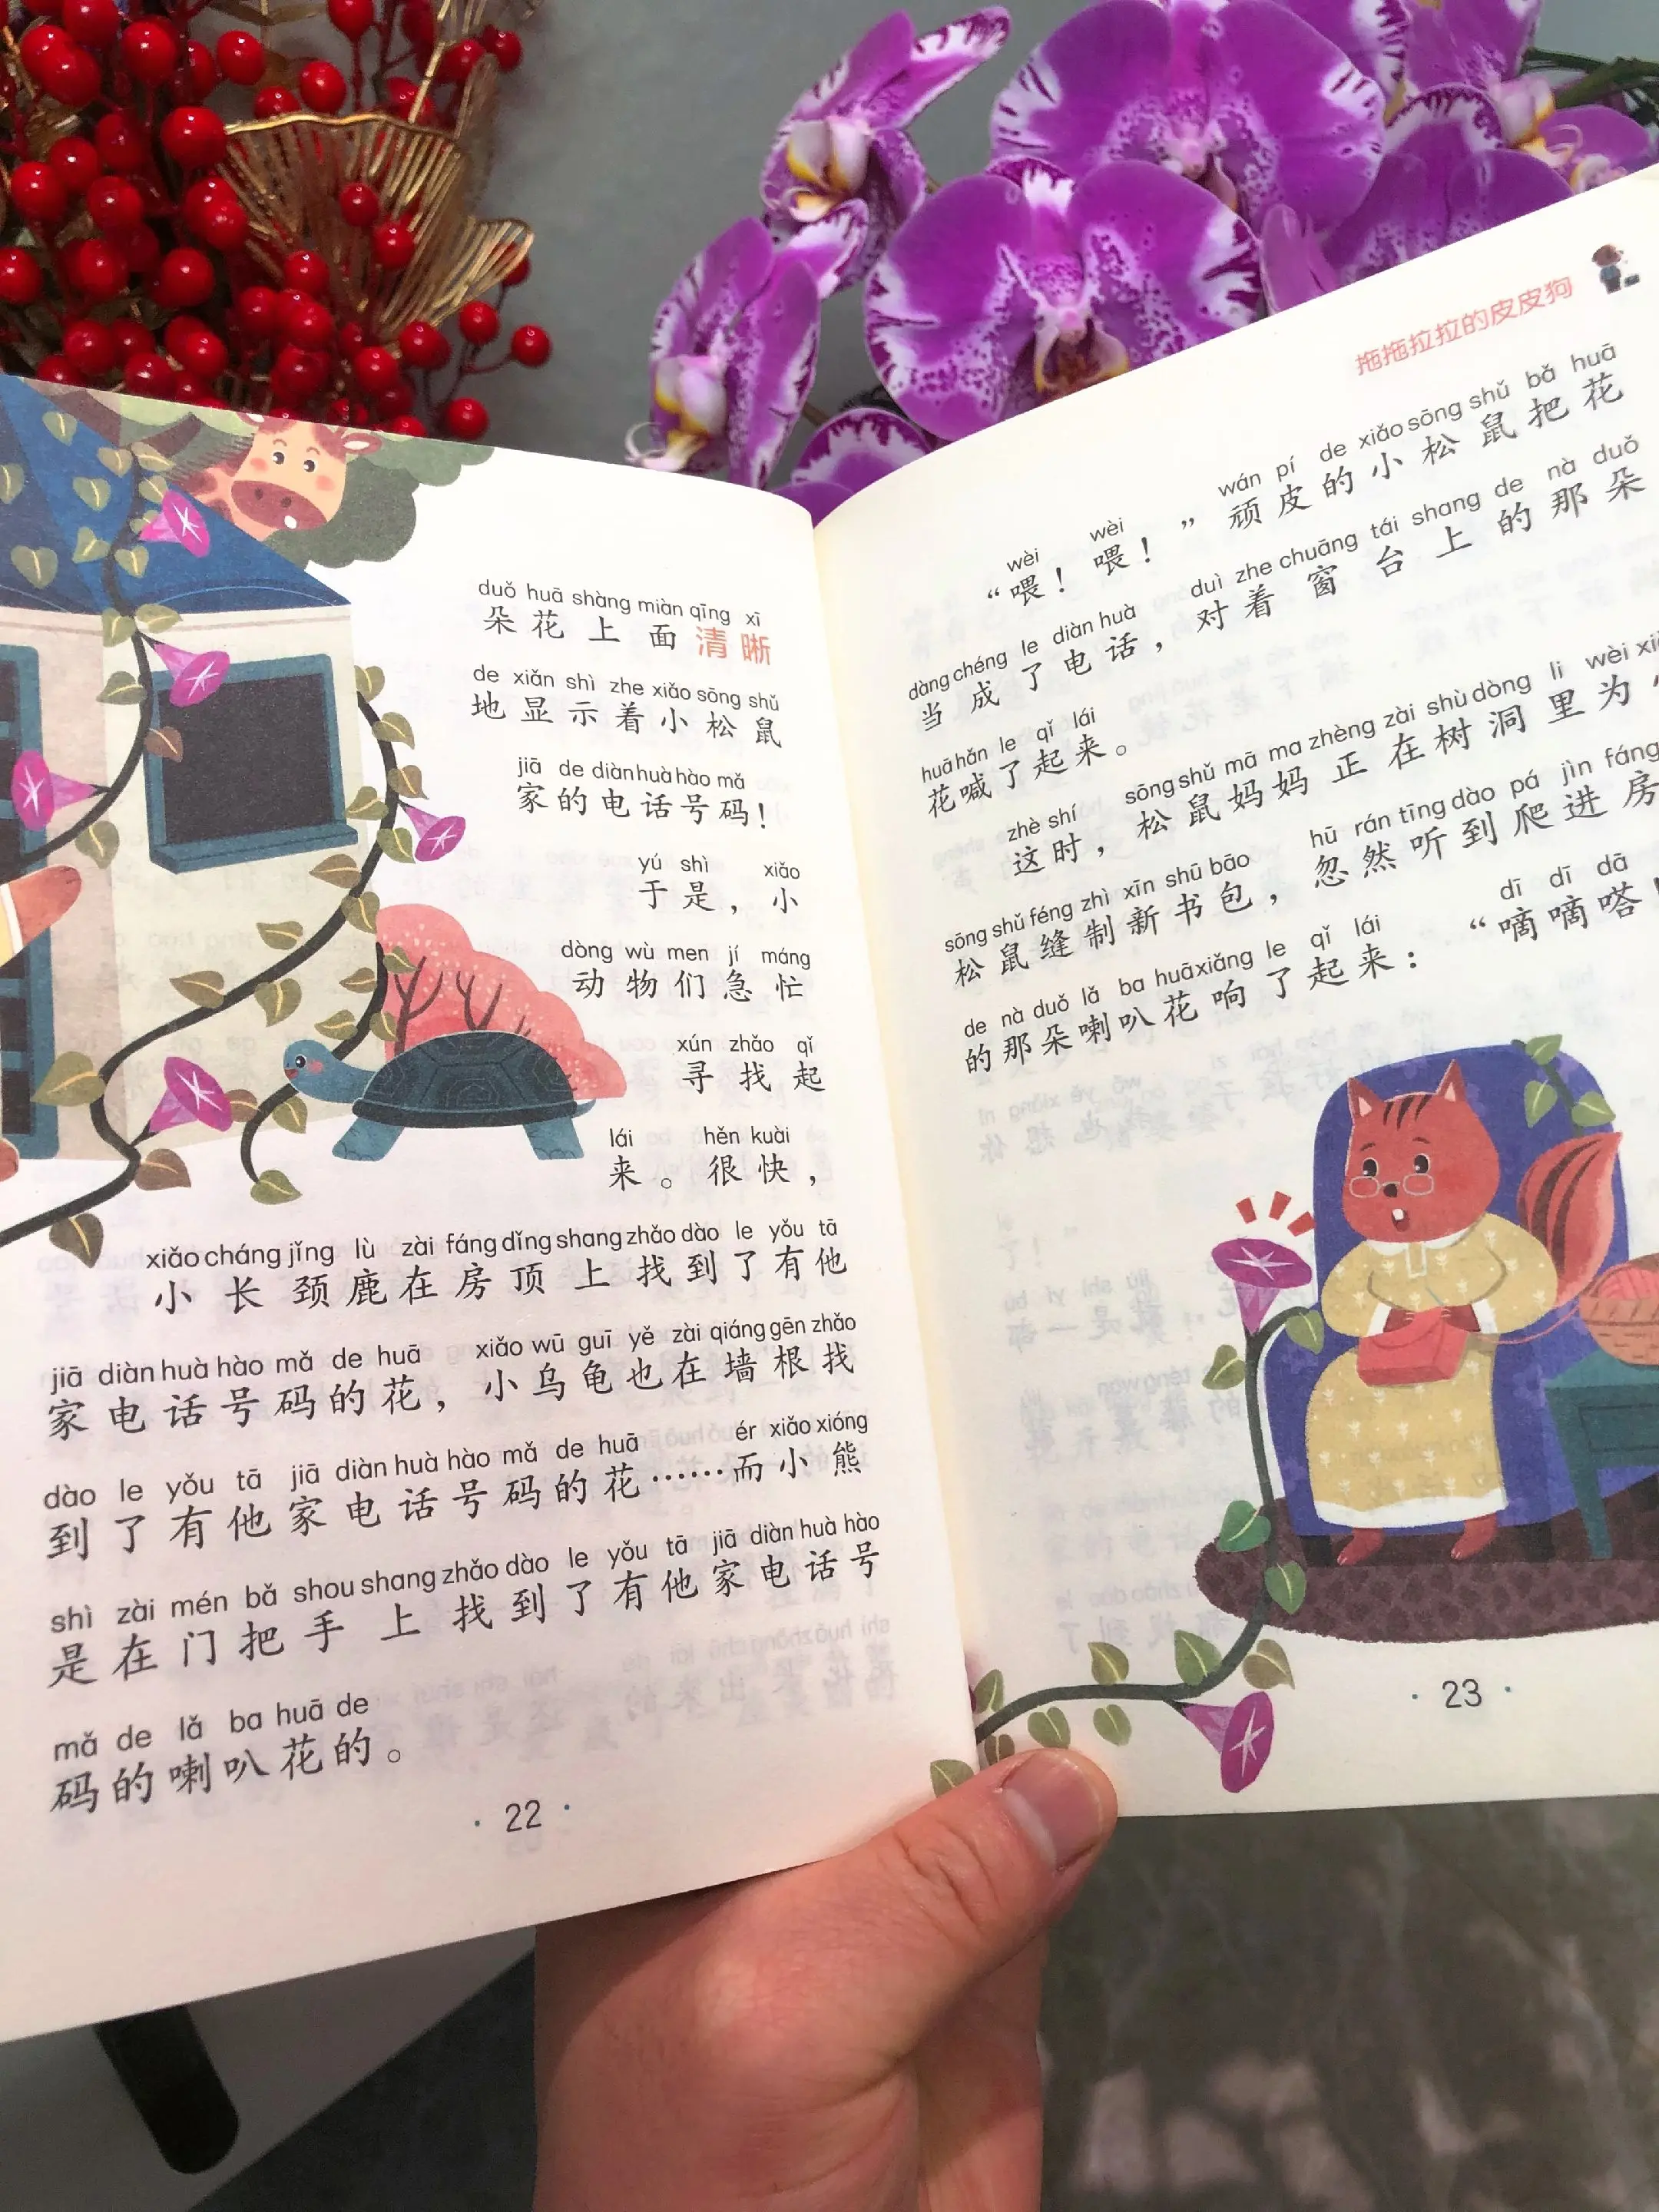 duǒ huā shàng miàn qīng xī
朵花上面清晰
de xiǎn shì zhe xiǎo sōng shǔ
地显示着小松鼠
jiā de diàn huà hào mǎ
家的电话号码！
yú shì xiǎo
于是，小
dòng wù men jí máng
动物们急忙
xún zhǎo qǐ
寻找起
lái hěn kuài
来。很快，
xiǎo cháng jǐng lù zài fáng dǐng shang zhǎo dào le yǒu tā
小长颈鹿在房顶上找到了有他
jiā diàn huà hào mǎ de huā xiǎo wū guī yě zài qiáng gēn zhǎo
家电话号码的花，小乌龟也在墙根找
dào le yǒu tā jiā diàn huà hào mǎ de huā ér xiǎo xióng
到了有他家电话号码的花……而小熊
shì zài mén bǎ shou shang zhǎo dào le yǒu tā jiā diàn huà hào
是在门把手上找到了有他家电话号
mǎ de lǎ ba huā de
码的喇叭花的。
· 22 ·
拖拖拉拉的皮皮狗
wèi wèi wán pí de xiǎo sōng shǔ bǎ huā
“喂！喂！”顽皮的小松鼠把花
dàng chéng le diàn huà duì zhe chuāng tái shang de nà duǒ
当成了电话，对着窗台上的那朵
huā hǎn le qǐ lái
花喊了起来。
zhè shí sōng shǔ mā ma zhèng zài shù dòng li wèi
这时，松鼠妈妈正在树洞里为
sōng shǔ féng zhì xīn shū bāo hū rán tīng dào pá jìn fáng
松鼠缝制新书包，忽然听到爬进房
de nà duǒ lǎ ba huā xiǎng le qǐ lái dī dī dā
的那朵喇叭花响了起来：“嘀嘀嗒！
· 23 ·